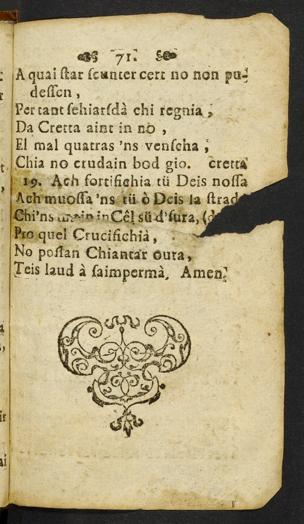 71.
A quai star scunter cert no non pu-
dessen,
Per tant sehiarsdà chi regnia,
Da Cretta aint in nò,
El mal quatras 'ns venscha,
Chia no crudain bod gio. cretta
19. Ach fortifichia tü Deis nossa
Ach muossa 'ns tü ò Deis la strada
Chi'ns in Cêl sü d'sura, (d
Pro quel Crucifichià,
No possan Chiantar oura,
Teis laud à saimpermà. Amen.